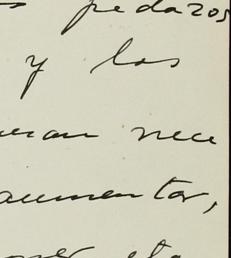 pedazos
y las
eran nece
aumentar,